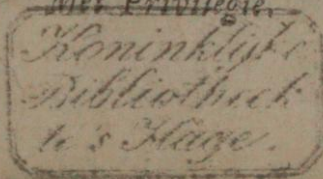 Met Privilegie.
Koninklijke
Bibliotheek
te's Hage.